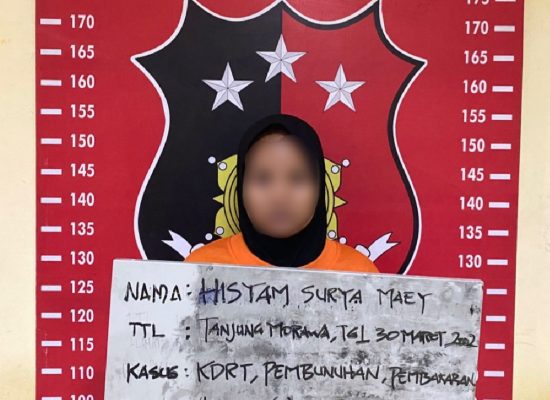 175
170
170
165
165
160
160
155
155
150
150
145
145
140
140
135
135
130
130
125
120
115
110
110
100
NAMA : HISTAM SURYA MAEY
TTL : TANJUNG MORAWA, TGL 30 MARET, 2002
KASUS : KDRT, PEMBUNUHAN, PEMBAKARAN